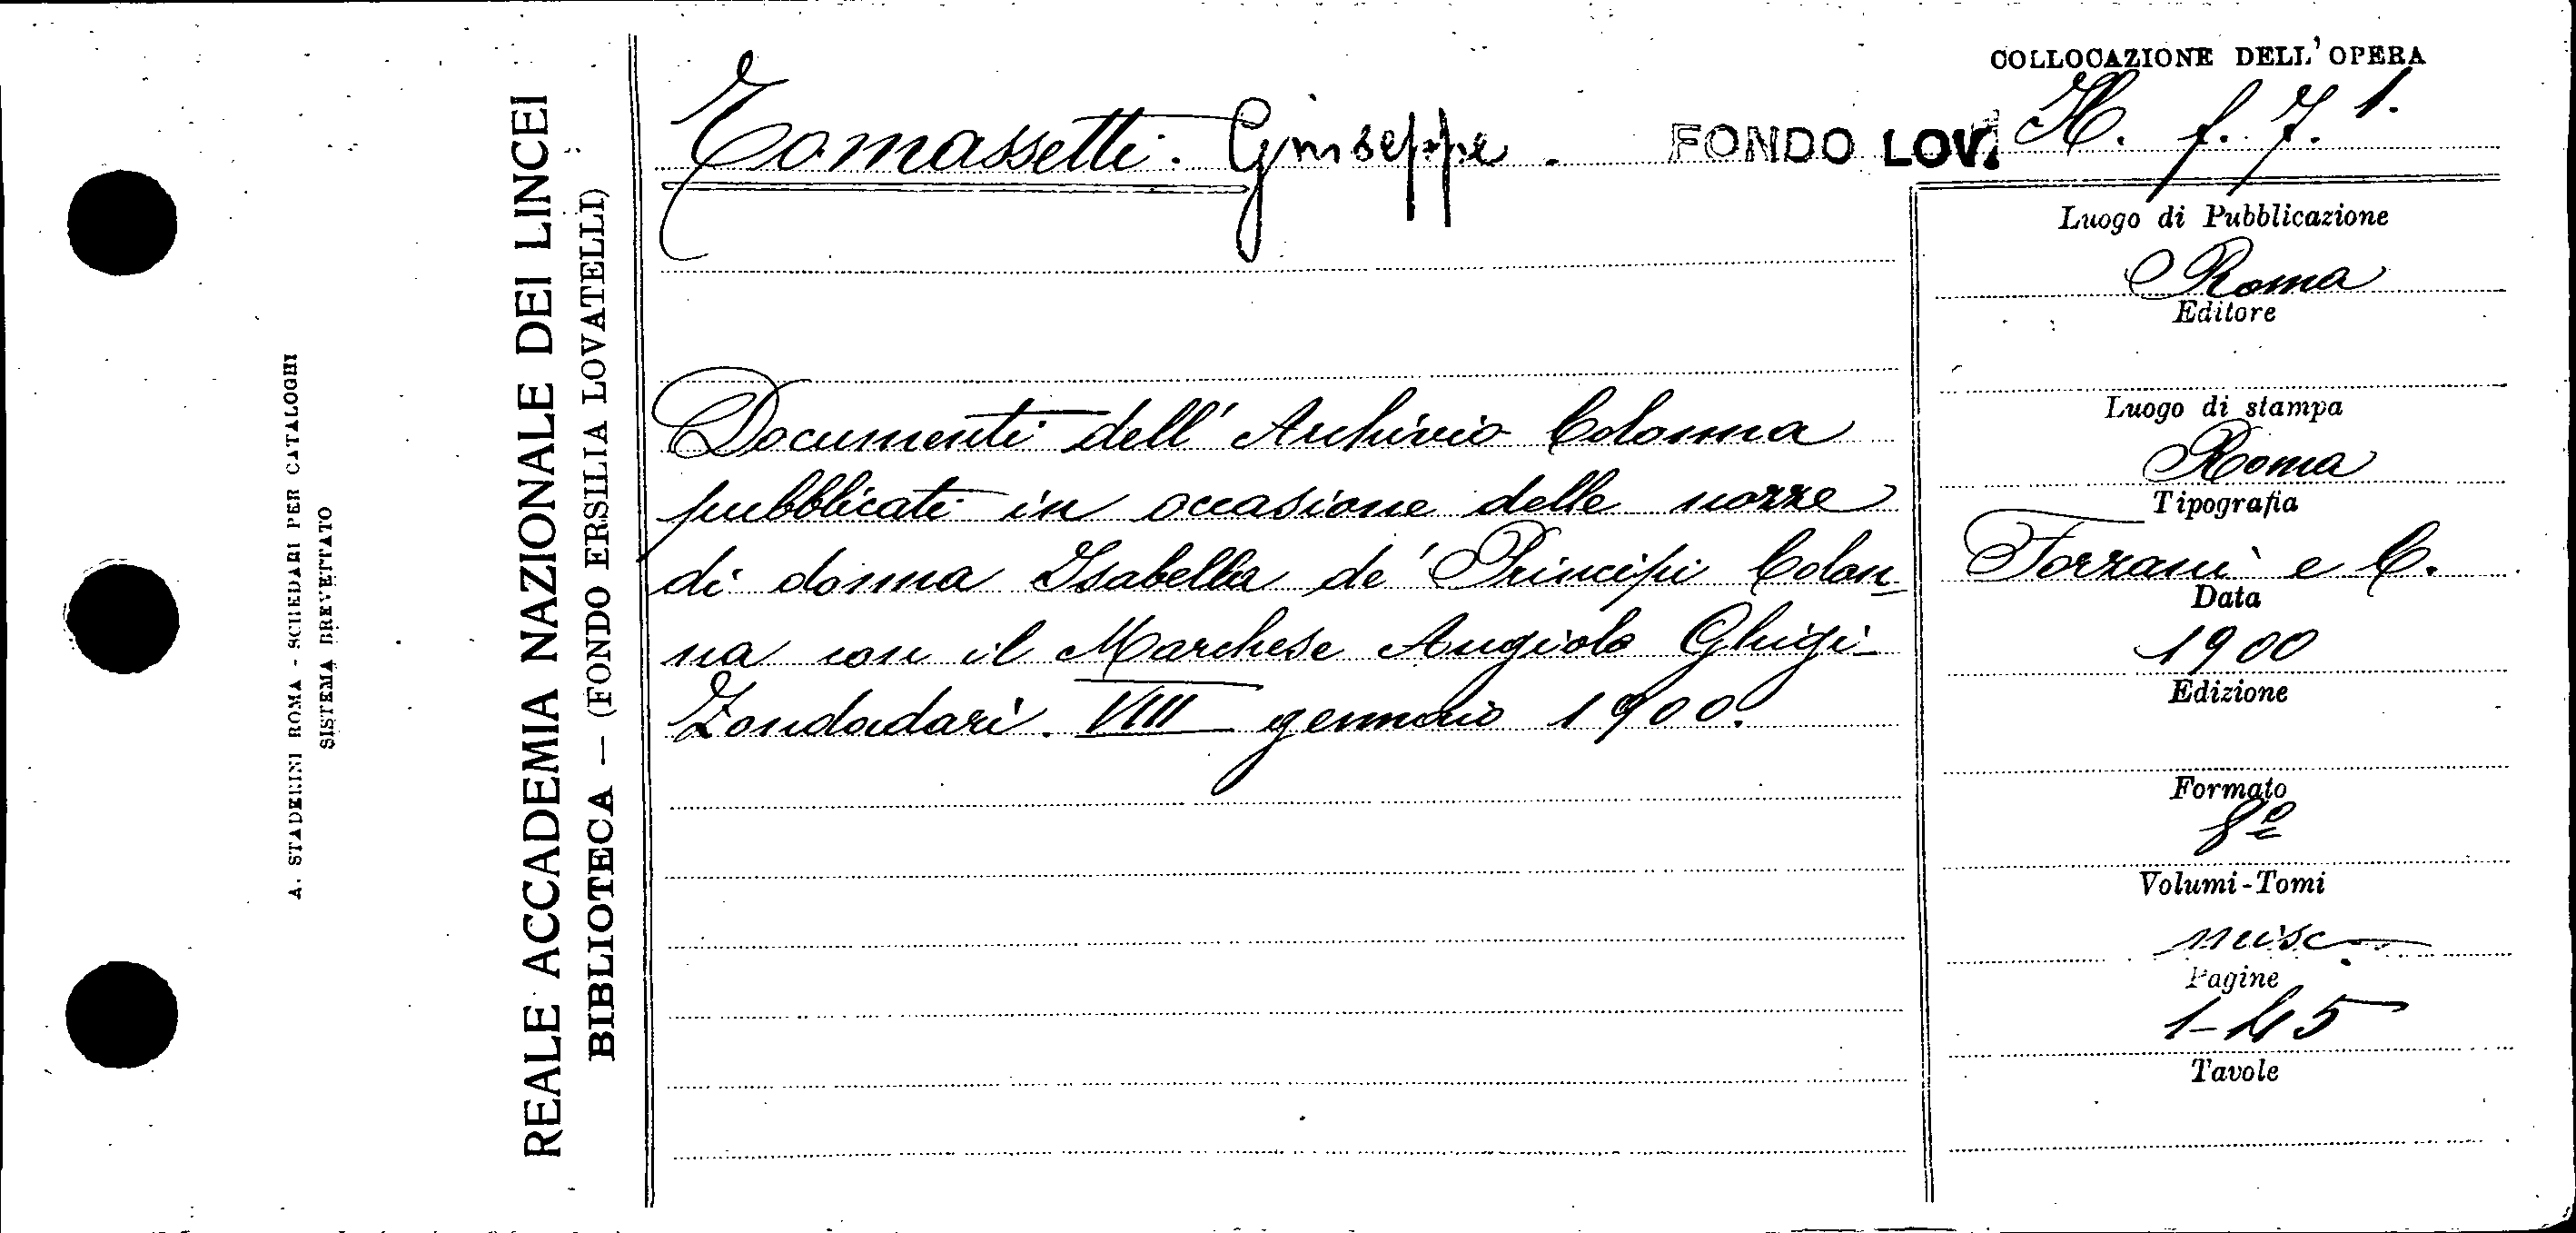 A. STADERINI ROMA - SCHEDARI PER CATALOGHI
SISTEMA BREVETTATO
REALE ACCADEMIA NAZIONALE DEI LINCEI
BIBLIOTECA — (FONDO ERSILIA LOVATELLI)
Tomassetti. Giuseppe.
Documenti dell' Archivio Colonna
pubblicati in occasione delle nozze
di donna Isabella de' Principi Colon-
na con il Marchese Angiolo Ghigi-
Zondadari. VIII gennaio 1900.
COLLOCAZIONE DELL'OPERA
FONDO LOV. H. f. 7. 1.
Luogo di Pubblicazione
Roma
Editore
Luogo di stampa
Roma
Tipografia
Forzani e C.
Data
1900
Edizione
Formato
8º
Volumi-Tomi
misc.
Pagine
1-45
Tavole